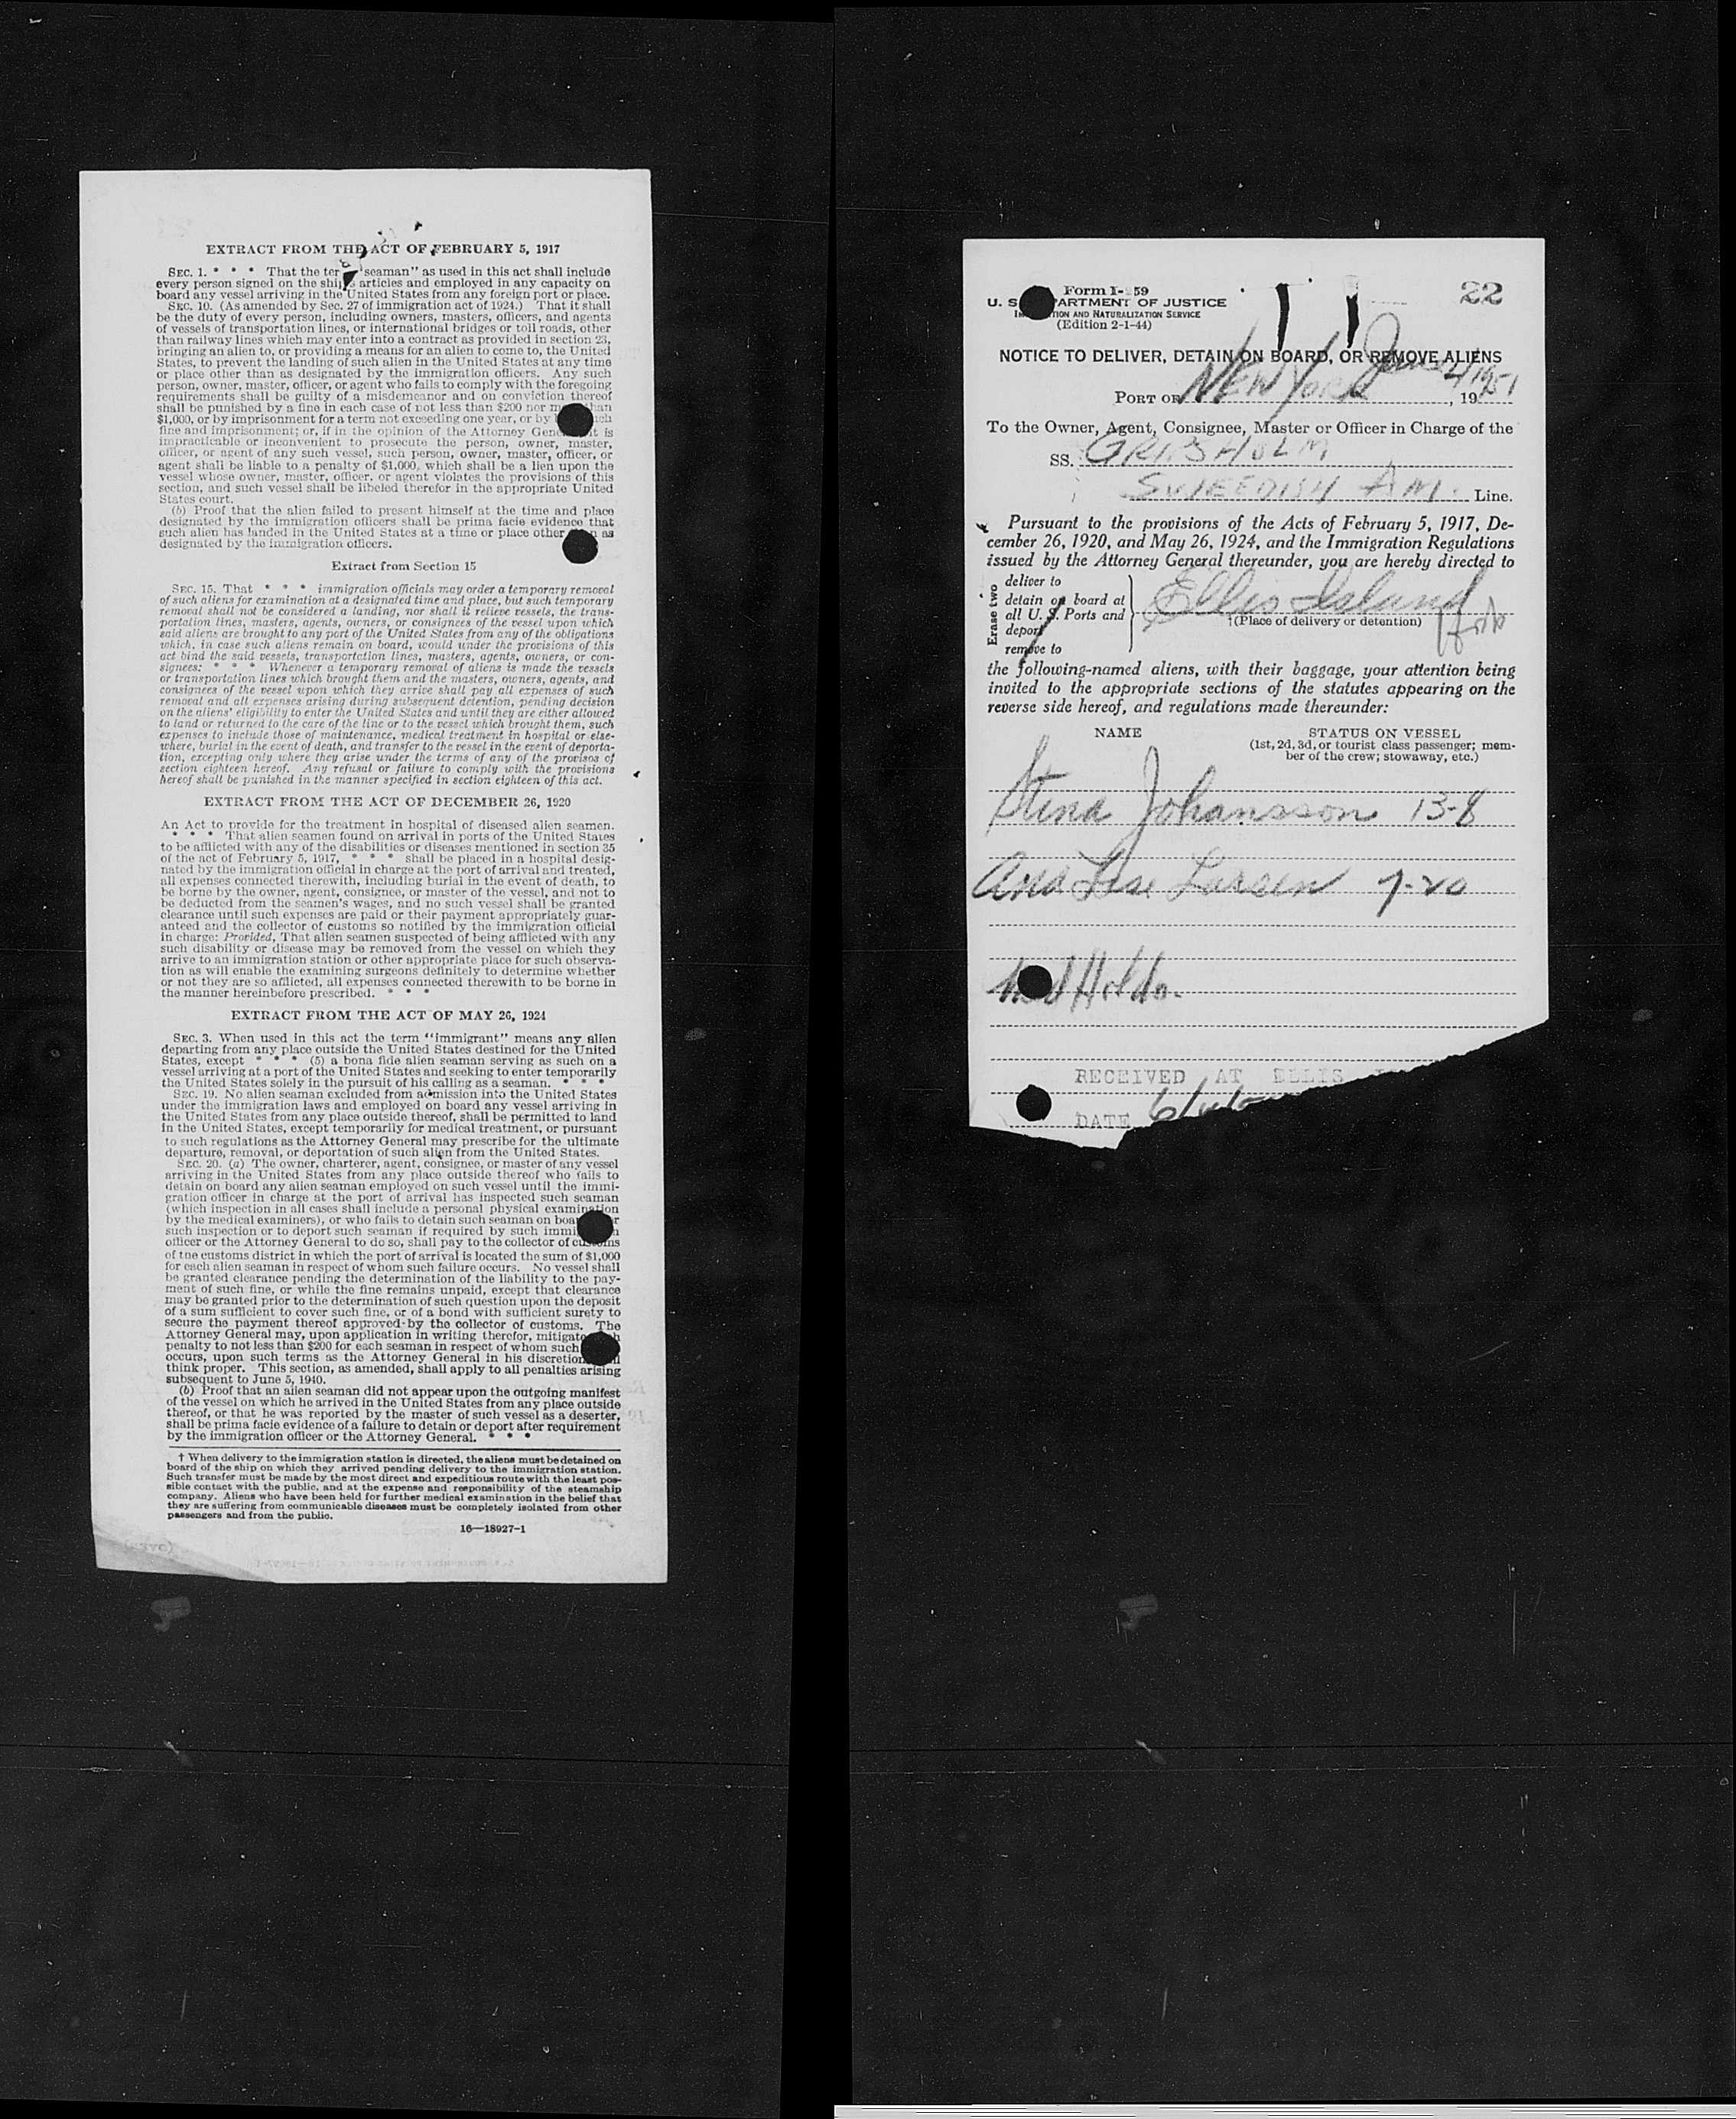 EXTRACT FROM THE ACT OF FEBRUARY 5, 1917
SEC. 1. * * * That the ter seaman" as used in this act shall include
every person signed on the ship's articles and employed in any capacity on
board any vessel arriving in the United States from any foreign port or place.
SEC. 10. (As amended by Sec. 27 of Immigration act of 1924.) That it shall
be the duty of every person, including owners, masters, officers, and agents
of vessels of transportation lines, or international bridges or toll roads, other
than railway lines which may enter into a contract as provided in section 23,
bringing an alien to, or providing a means for an alien to come to, the United
States, to prevent the landing of such alien in the United States at any time
or place other than as designated by the immigration officers. Any such
person, owner, master, officer, or agent who fails to comply with the foregoing
requirements shall be guilty of a misdemeanor and on conviction thereof
shall be punished by a fine in each case of not less than $200 nor m than
$1,000, or by imprisonment for a term not exceeding one year, or by b ch
fine and imprisonment; or, if in the opinion of the Attorney Gene it is
impracticable or inconvenient to prosecute the person, owner, master,
officer, or agent of any such vessel, such person, owner, master, officer, or
agent shall be liable to a penalty of $1,000, which shall be a lien upon the
vessel whose owner, master, officer, or agent violates the provisions of this
section, and such vessel shall be libeled therefor in the appropriate United
States court.
(b) Proof that the alien failed to present himself at the time and place
designated by the immigration officers shall be prima facie evidence that
such alien has landed in the United States at a time or place other n as
designated by the immigration officers.
Extract from Section 15
SEC. 15. That * * * immigration officials may order a temporary removal
of such aliens for examination at a designated time and place, but such temporary
removal shall not be considered a landing, nor shall it relieve vessels, the trans-
portation lines, masters, agents, owners, or consignees of the vessel upon which
said aliens are brought to any port of the United States from any of the obligations
which, in case such aliens remain on board, would under the provisions of this
act bind the said vessels, transportation lines, masters, agents, owners, or con-
signees: * * * Whenever a temporary removal of aliens is made the vessels
or transportation lines which brought them and the masters, owners, agents, and
consignees of the vessel upon which they arrive shall pay all expenses of such
removal and all expenses arising during subsequent detention, pending decision
on the aliens' eligibility to enter the United States and until they are either allowed
to land or returned to the care of the line or to the vessel which brought them, such
expenses to include those of maintenance, medical treatment in hospital or else-
where, burial in the event of death, and transfer to the vessel in the event of deporta-
tion, excepting only where they arise under the terms of any of the provisos of
section eighteen hereof. Any refusal or failure to comply with the provisions
hereof shall be punished in the manner specified in section eighteen of this act.
EXTRACT FROM THE ACT OF DECEMBER 26, 1920
An Act to provide for the treatment in hospital of diseased alien seamen.
* * * That alien seamen found on arrival in ports of the United States
to be afflicted with any of the disabilities or diseases mentioned in section 35
of the act of February 5, 1917, * * * shall be placed in a hospital desig-
nated by the immigration official in charge at the port of arrival and treated,
all expenses connected therewith, including burial in the event of death, to
be borne by the owner, agent, consignee, or master of the vessel, and not to
be deducted from the seamen's wages, and no such vessel shall be granted
clearance until such expenses are paid or their payment appropriately guar-
anteed and the collector of customs so notified by the immigration official
in charge: Provided, That alien seamen suspected of being afflicted with any
such disability or disease may be removed from the vessel on which they
arrive to an immigration station or other appropriate place for such observa-
tion as will enable the examining surgeons definitely to determine whether
or not they are so afflicted, all expenses connected therewith to be borne in
the manner hereinbefore prescribed. * * *
EXTRACT FROM THE ACT OF MAY 26, 1924
SEC. 3. When used in this act the term "immigrant" means any alien
departing from any place outside the United States destined for the United
States, except * * * (5) a bona fide alien seaman serving as such on a
vessel arriving at a port of the United States and seeking to enter temporarily
the United States solely in the pursuit of his calling as a seaman. * * *
SEC. 19. No alien seaman excluded from admission into the United States
under the immigration laws and employed on board any vessel arriving in
the United States from any place outside thereof, shall be permitted to land
in the United States, except temporarily for medical treatment, or pursuant
to such regulations as the Attorney General may prescribe for the ultimate
departure, removal, or deportation of such alien from the United States.
SEC. 20. (a) The owner, charterer, agent, consignee, or master of any vessel
arriving in the United States from any place outside thereof who fails to
detain on board any alien seaman employed on such vessel until the immi-
gration officer in charge at the port of arrival has inspected such seaman
(which inspection in all cases shall include a personal physical examination
by the medical examiners), or who fails to detain such seaman on boar r
such inspection or to deport such seaman if required by such immi n
officer or the Attorney General to do so, shall pay to the collector of customs
of the customs district in which the port of arrival is located the sum of $1,000
for each alien seaman in respect of whom such failure occurs. No vessel shall
be granted clearance pending the determination of the liability to the pay-
ment of such fine, or while the fine remains unpaid, except that clearance
may be granted prior to the determination of such question upon the deposit
of a sum sufficient to cover such fine, or of a bond with sufficient surety to
secure the payment thereof approved by the collector of customs. The
Attorney General may, upon application in writing therefor, mitigate h
penalty to not less than $200 for each seaman in respect of whom such
occurs, upon such terms as the Attorney General in his discretion
think proper. This section, as amended, shall apply to all penalties arising
subsequent to June 5, 1940.
(b) Proof that an alien seaman did not appear upon the outgoing manifest
of the vessel on which he arrived in the United States from any place outside
thereof, or that he was reported by the master of such vessel as a deserter,
shall be prima facie evidence of a failure to detain or deport after requirement
by the immigration officer or the Attorney General. * * *
† When delivery to the immigration station is directed, the aliens must be detained on
board of the ship on which they arrived pending delivery to the immigration station.
Such transfer must be made by the most direct and expeditious route with the least pos-
sible contact with the public, and at the expense and responsibility of the steamship
company. Aliens who have been held for further medical examination in the belief that
they are suffering from communicable diseases must be completely isolated from other
passengers and from the public.
16—18927-1
Form I- 59
22
U. S. ARTMENT OF JUSTICE
TION AND NATURALIZATION SERVICE
(Edition 2-1-44)
NOTICE TO DELIVER, DETAIN ON BOARD, OR REMOVE ALIENS
PORT OF New York June 4/1951, 19
To the Owner, Agent, Consignee, Master or Officer in Charge of the
SS. GRIPSHOLM
SWEEDISH AM. Line.
Pursuant to the provisions of the Acts of February 5, 1917, De-
cember 26, 1920, and May 26, 1924, and the Immigration Regulations
issued by the Attorney General thereunder, you are hereby directed to
Erase two
deliver to
detain on board at
all U. S. Ports and
deport
remove to
Ellis Island
†(Place of delivery or detention)
the following-named aliens, with their baggage, your attention being
invited to the appropriate sections of the statutes appearing on the
reverse side hereof, and regulations made thereunder:
NAME STATUS ON VESSEL
(1st, 2d, 3d, or tourist class passenger; mem-
ber of the crew; stowaway, etc.)
Stina Johansson 13-8
Ana Lise Larsen 7-20
Holds.
RECEIVED AT ELLIS
DATE